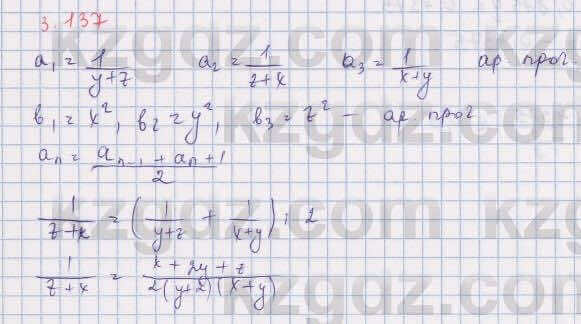 3.137
a₁ = 1/(y+z)   a₂ = 1/(z+x)   a₃ = 1/(x+y)   ар. прог.
b₁ = x², b₂ = y², b₃ = z² — ар. прог
aₙ = (aₙ₋₁ + aₙ+1)/2
1/(z+x) = (1/(y+z) + 1/(x+y)) : 2
1/(z+x) = (x+2y+z)/(2(y+z)(x+y))
kzgdz.com